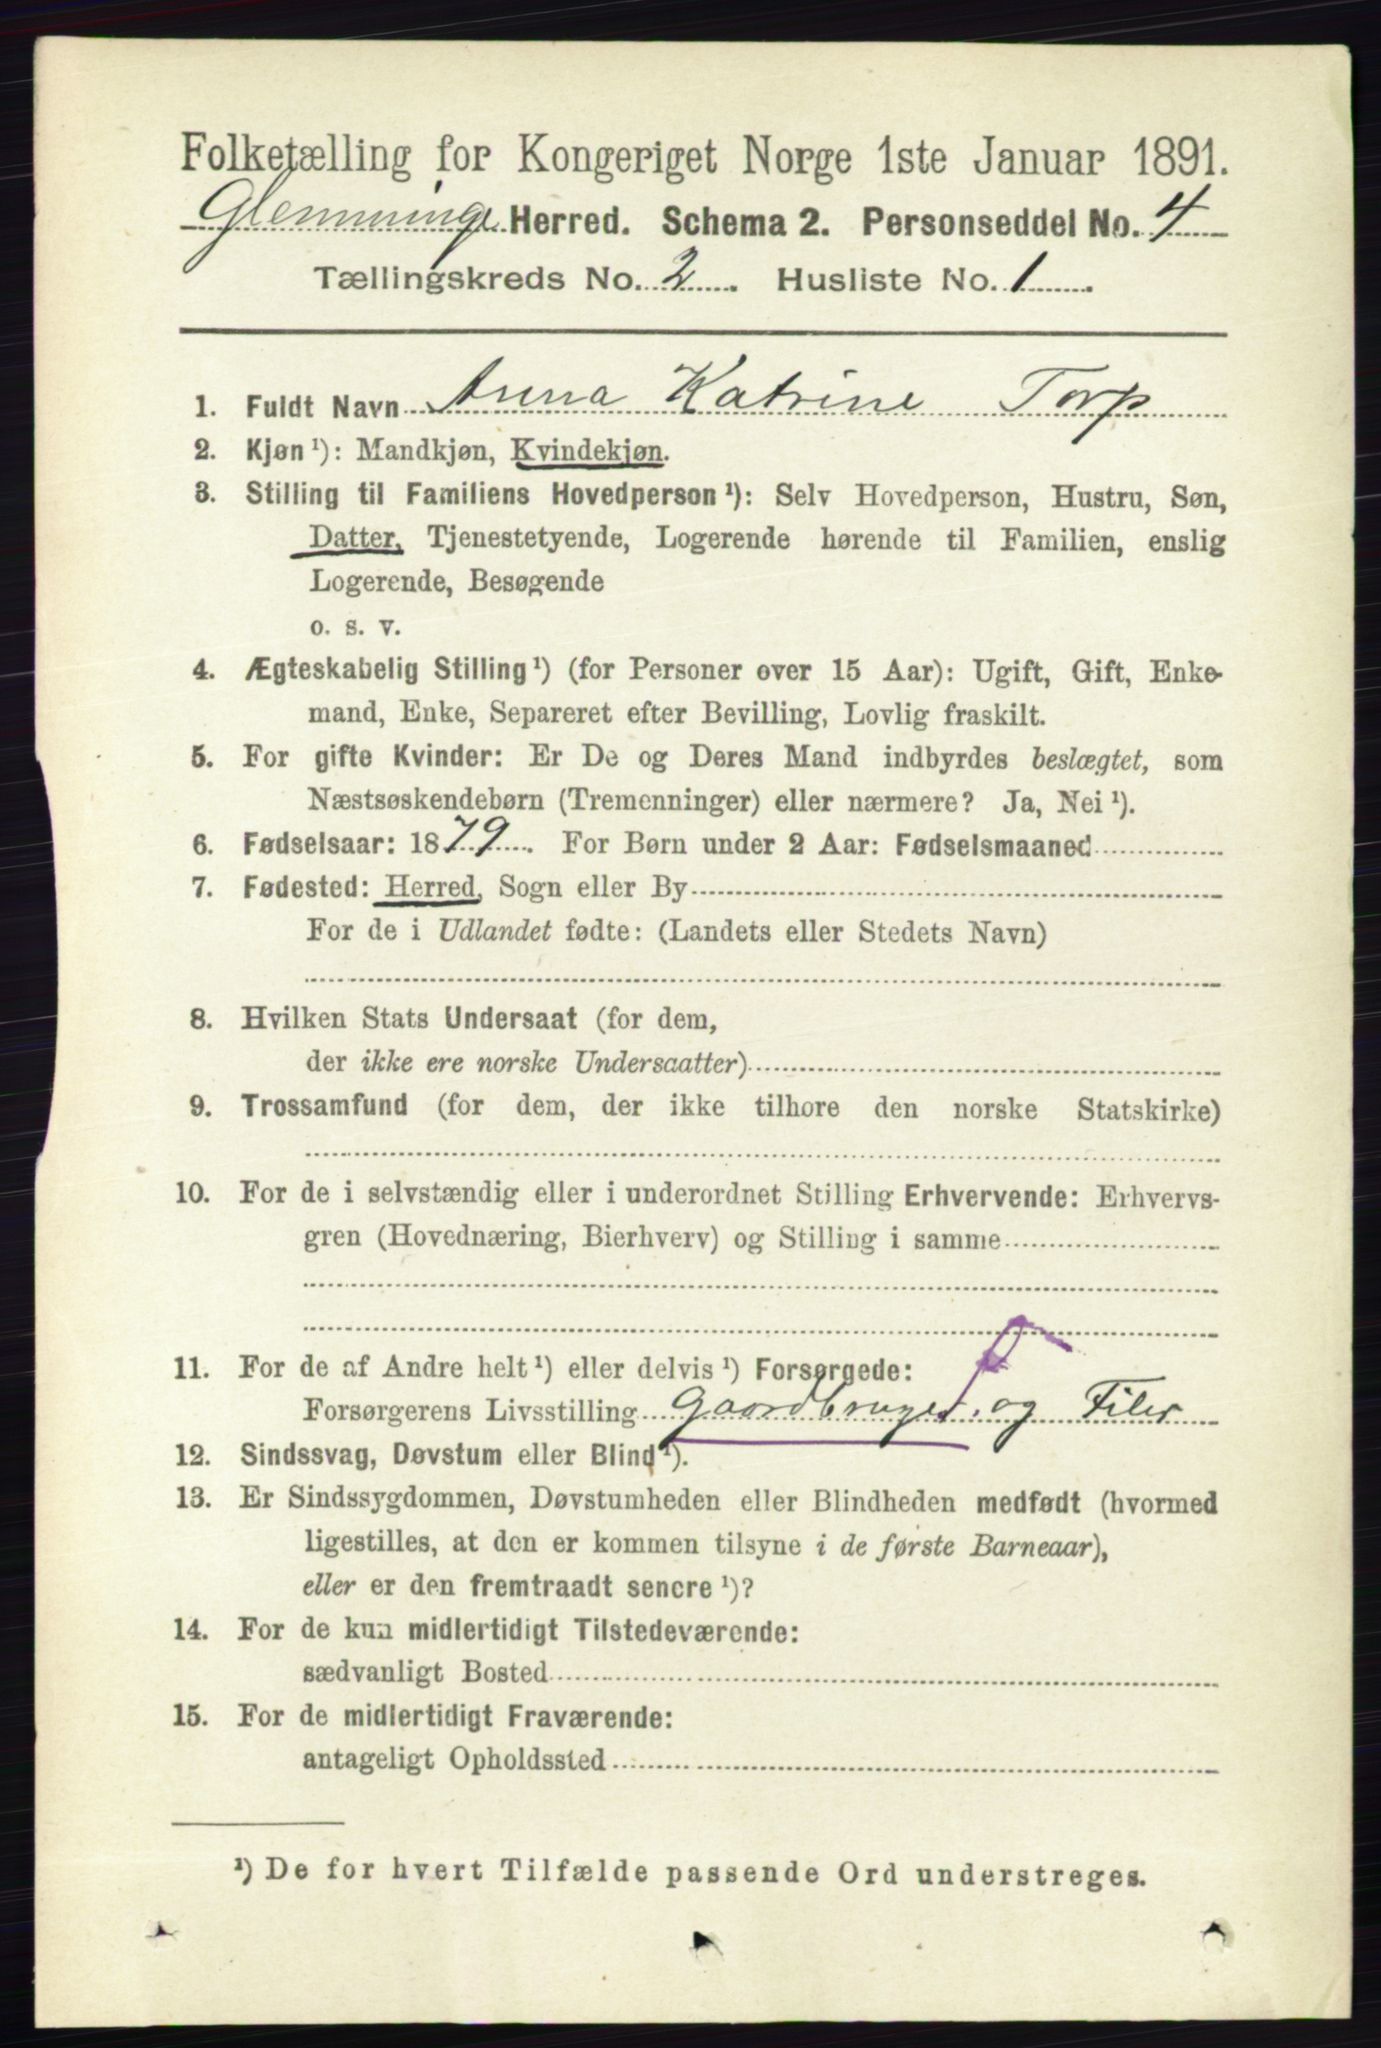 Folketælling for Kongeriget Norge 1ste Januar 1891.
Glemminge Herred. Schema 2. Personseddel No. 4
Tællingskreds No. 2. Husliste No. 1.
1. Fuldt Navn Anna Katrine Torp
2. Kjøn ¹): Mandkjøn, Kvindekjøn.
3. Stilling til Familiens Hovedperson ¹): Selv Hovedperson, Hustru, Søn,
Datter, Tjenestetyende, Logerende hørende til Familien, enslig
Logerende, Besøgende
o. s. v.
4. Ægteskabelig Stilling ¹) (for Personer over 15 Aar): Ugift, Gift, Enke-
mand, Enke, Separeret efter Bevilling, Lovlig fraskilt.
5. For gifte Kvinder: Er De og Deres Mand indbyrdes beslægtet, som
Næstsøskendebørn (Tremenninger) eller nærmere? Ja, Nei ¹).
6. Fødselsaar: 1879. For Børn under 2 Aar: Fødselsmaaned
7. Fødested: Herred, Sogn eller By
For de i Udlandet fødte: (Landets eller Stedets Navn)
8. Hvilken Stats Undersaat (for dem,
der ikke ere norske Undersaatter)
9. Trossamfund (for dem, der ikke tilhøre den norske Statskirke)
10. For de i selvstændig eller i underordnet Stilling Erhvervende: Erhvervs-
gren (Hovednæring, Bierhverv) og Stilling i samme
11. For de af Andre helt ¹) eller delvis ¹) Forsørgede:
Forsørgerens Livsstilling Gaardbruger og Filer
12. Sindssvag, Døvstum eller Blind ¹).
13. Er Sindssygdommen, Døvstumheden eller Blindheden medfødt (hvormed
ligestilles, at den er kommen tilsyne i de første Barneaar),
eller er den fremtraadt senere ¹)?
14. For de kun midlertidigt Tilstedeværende:
sædvanligt Bosted
15. For de midlertidigt Fraværende:
antageligt Opholdssted
¹) De for hvert Tilfælde passende Ord understreges.